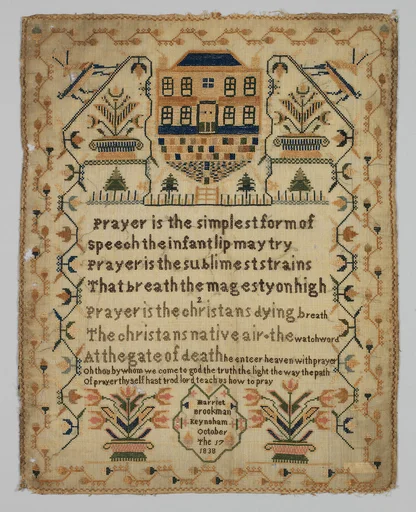 Prayer is the simplest form of
speech the infant lip may try
Prayer is the sublimest strains
That breath the magesty on high
2
Prayer is the christans dying breath
The christans native air-the watchword
At the gate of death he enteer heaven with prayer
Oh thou by whom we come to god the truth the light the way the path
Of prayer thyself hast trod lord teach us how to pray
Harriet
Brookman
Keynsham
October
The 17
1838